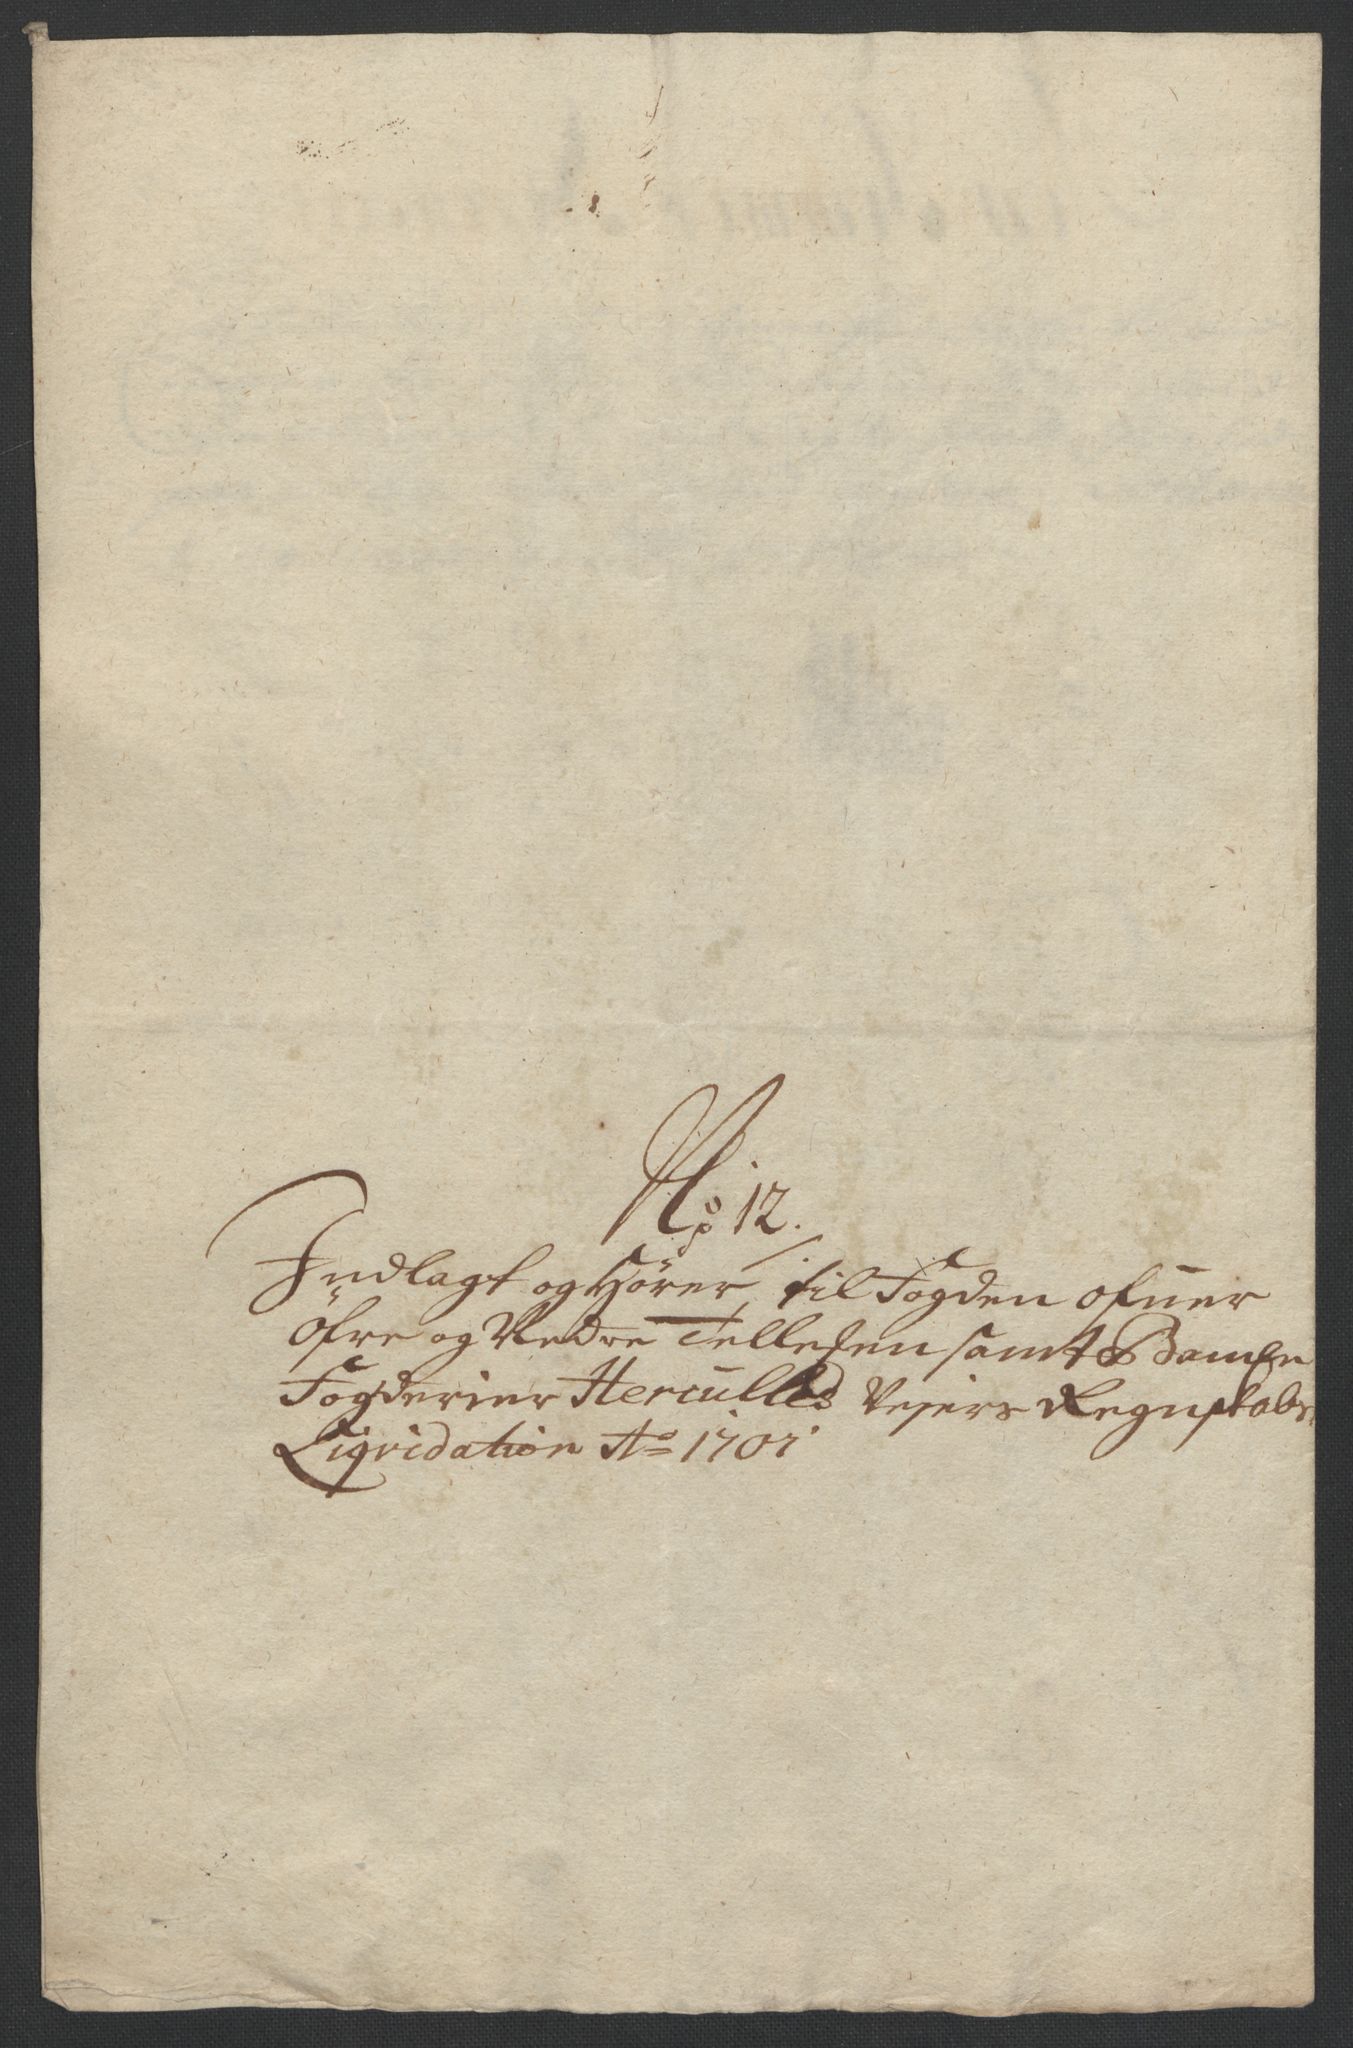 No 12.
Indlagt og Hörer til Fogden ofuer
Öfre og Nedre Tellesen samt Bamble
Fogderier Hercülles Vejers Regnskabs
Liqvidation Ao 1707